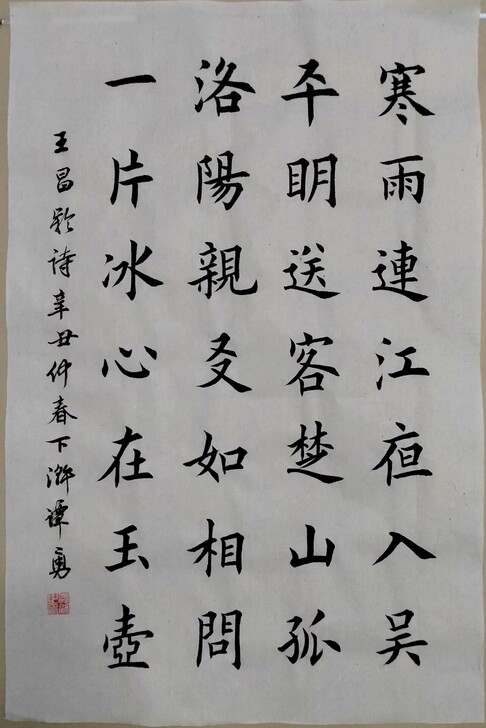 寒雨連江夜入吴
平明送客楚山孤
洛陽親友如相問
一片冰心在玉壺
王昌齡詩辛丑仲春下澣譚勇